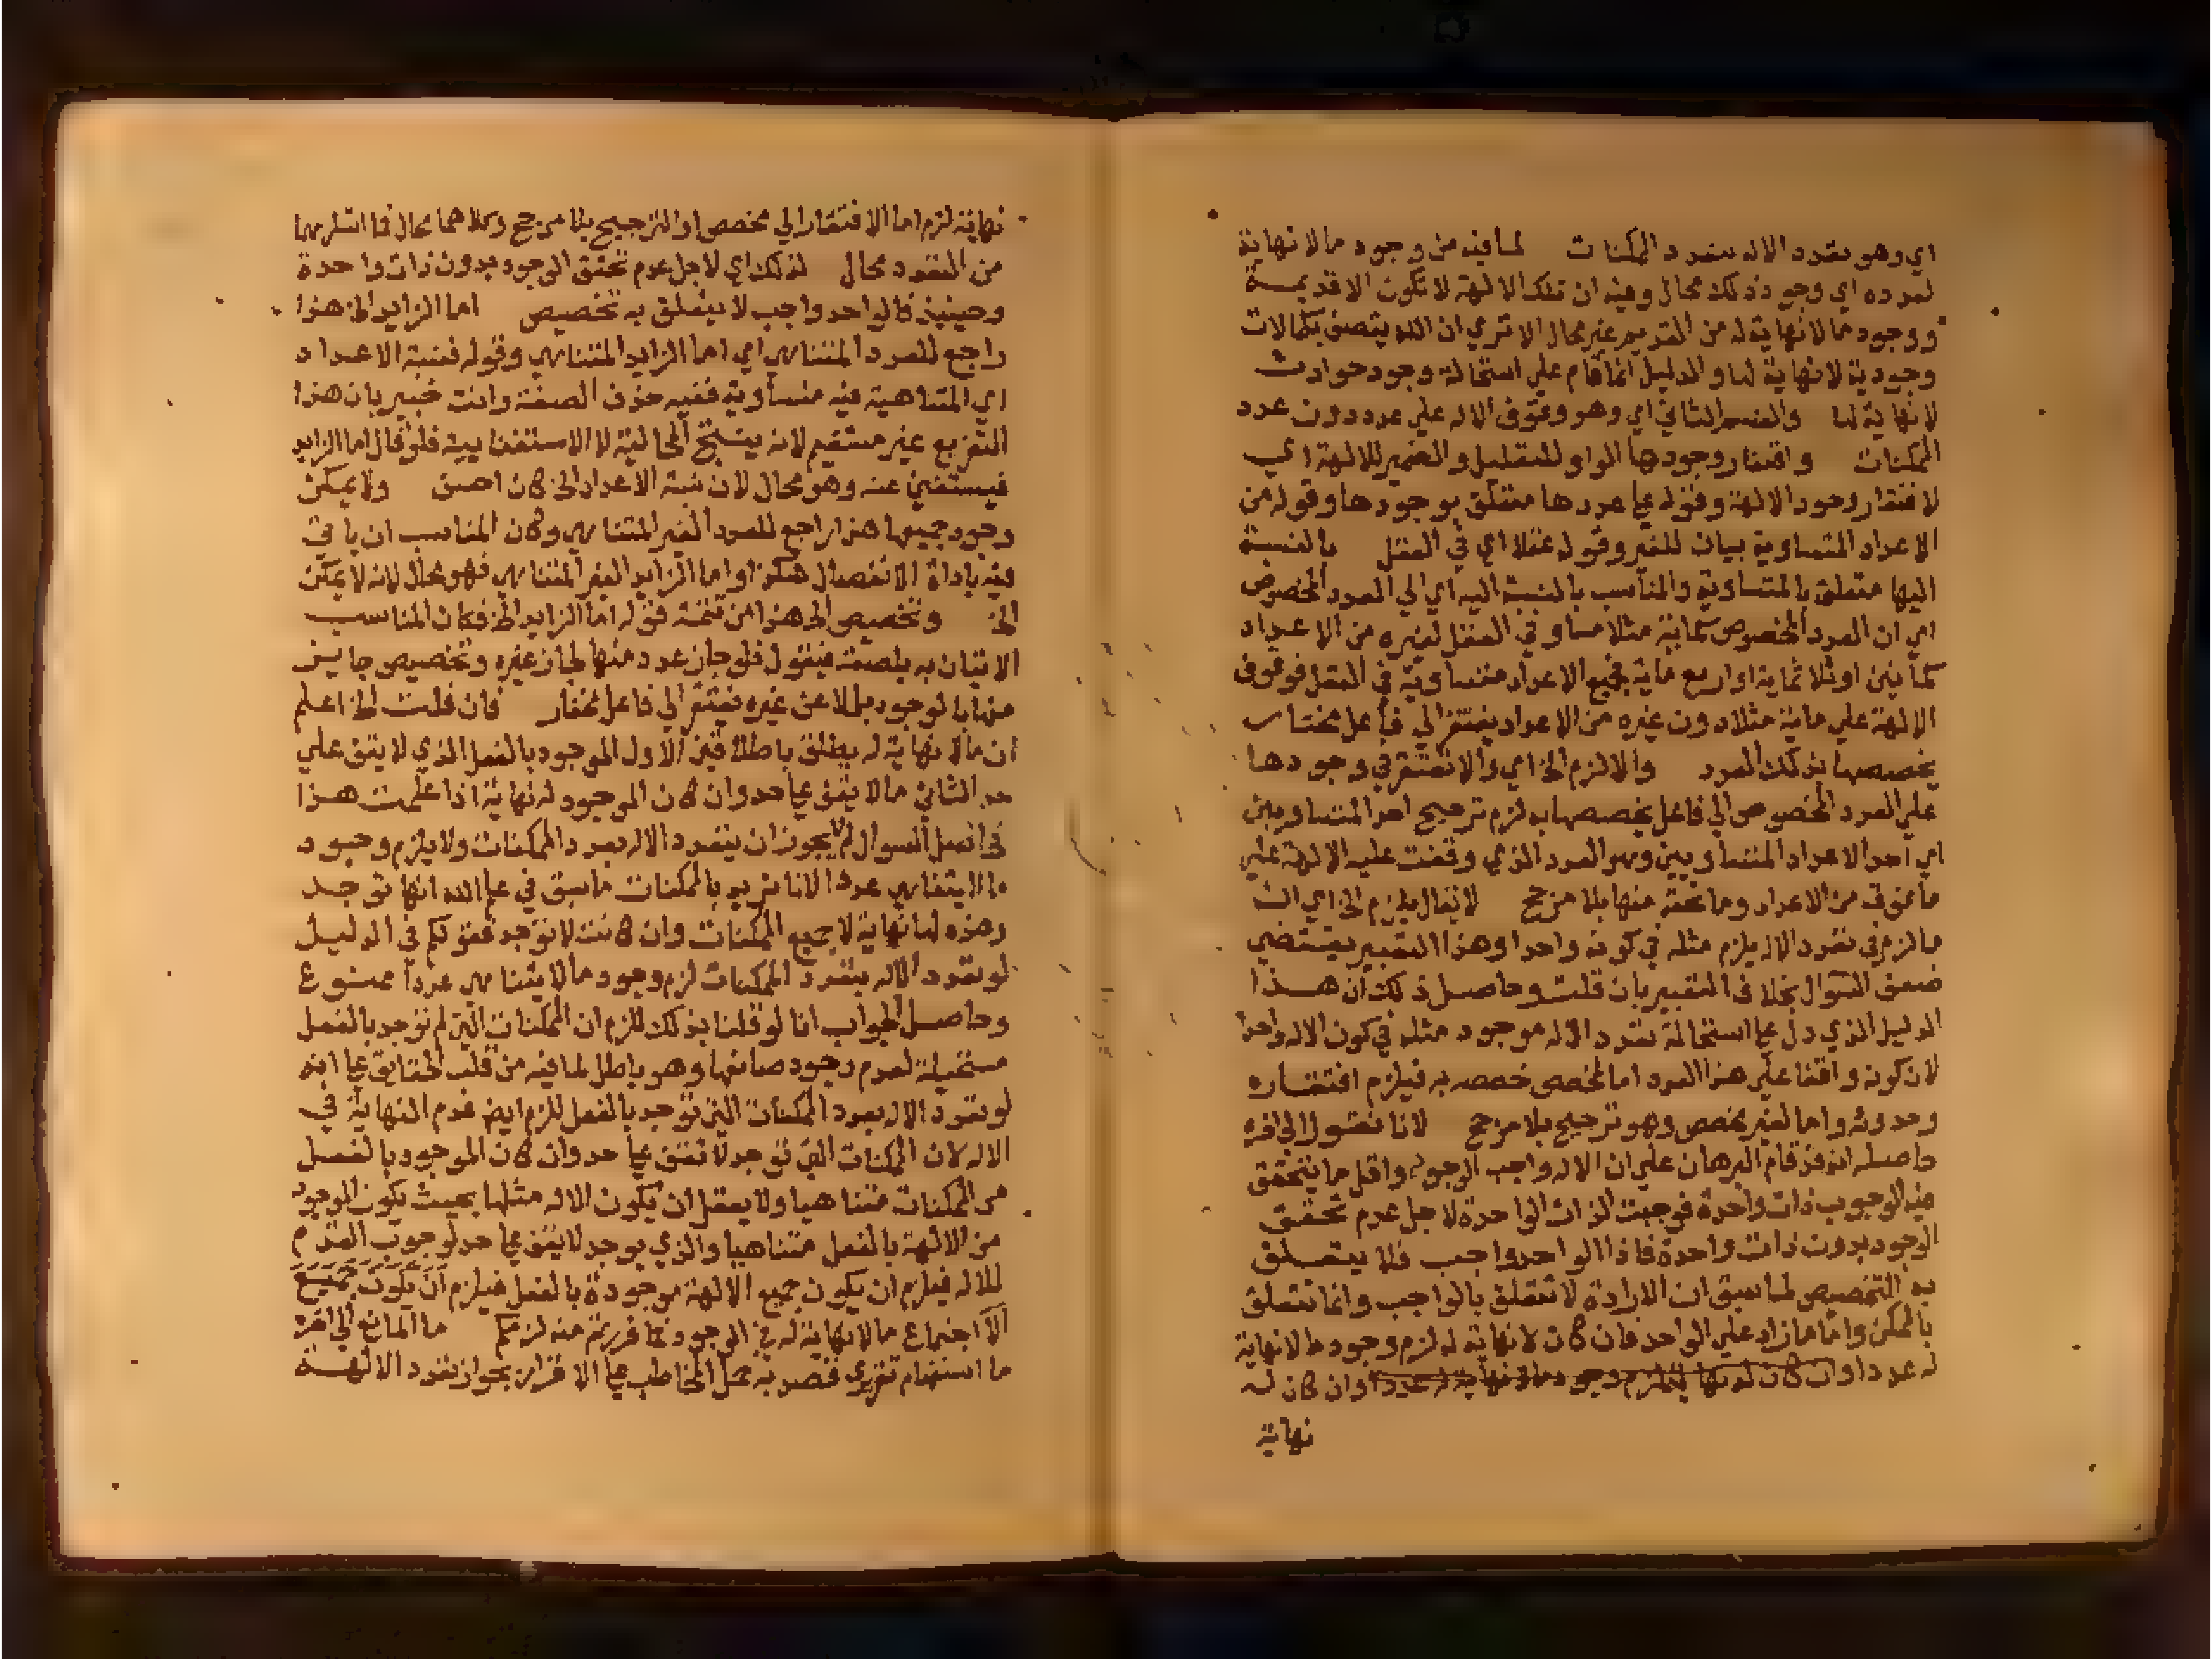 اي وهو تعدد الاله بتعدد الممكنات لما فيه من وجود مالا نهاية
لعدده اي وجود ذلك محال وفيه ان تلك الالهة لا تكون الا قديمة
ووجود مالا نهاية له من القديم غير محال الا تري ان الله يتصف بكمالات
وجودية لا نهاية لها والدليل انما قام علي استحالة وجود حوادث
لا نهاية لها والقسم الثاني اي وهو وقوف الاله علي عدد دون عدد
الممكنات وافتقار وجودها الواو للتعليل والضمير للالهة اي
لافتقار وجود الالهة وقوله علي عددها متعلق بوجودها وقوله من
الاعداد المتساوية بيان للغير وقوله عقلا اي في العقل بالنسبة
اليها متعلق بالمتساوية والمناسب بالنسبة اليه اي الي العدد المخصوص
اي ان العدد المخصوص كماية مثلا مساو في العقل لغيره من الاعداد
كماتين او ثلاثماية او اربع ماية فجميع الاعداد متساوية في العقل فوقوف
الالهة علي ماية مثلا دون غيره من الاعداد يفتقر الي فاعل مختار
يخصصها بذلك العدد والا لزم الخ اي والا تفتقر في وجودها
علي العدد المخصوص الي فاعل يخصصها به لزم ترجيح احد المتساويين
اي احد الاعداد المتساويين وهو العدد الذي وقفت عليه الالهة علي
ما فوق من الاعداد وما تحته منها بلا مرجح لا يقال يلزم الخ اي ان
ما لزم في تعدد الاله يلزم مثله في كونه واحدا وهذا التعبير يقتضي
ضعف السوال بخلاف التعبير بان قلت وحاصل ذلك ان هذا
الدليل الذي دل علي استحالة تعدد الاله موجود مثله في كون الاله واحدا
لان كونه واقفا علي هذا العدد اما لمخصص خصصه به فيلزم افتقاره
وحدوثه واما لغير مخصص وهو ترجيح بلا مرجح لانا نقول الي اخره
حاصله انه قد قام البرهان علي ان الاله واجب الوجود واقل ما يتحقق
فيه الوجوب ذات واحدة فوجبت الذات الواحدة لاجل عدم تحقق
الوجود بدون ذات واحدة فاذا الواحد واجب فلا يتعلق
به التخصيص لما سبق ان الارادة لا تتعلق بالواجب وانما تتعلق
بالممكن واما ما زاد علي الواحد فان كان لا نهاية له لزم وجود مالا نهاية
له عددا وان كان له نهاية لزم وجود مالا نهاية له عددا وان كان له
نهاية
نهاية لزم اما الافتقار الي مخصص او الترجيح بلا مرجح وكلاهما محال فما استلزمهما
من التعدد محال لذلك اي لاجل عدم تحقق الوجود بدون ذات واحدة
وحينيذ فالواحد واجب لا يتعلق به تخصيص اما الزايد الخ هذا
راجع للعدد المتناهي اي اما الزايد المتناهي وقوله فنسبة الاعداد
اي المتناهية فيه متساوية ففيه حذف الصفة وانت خبير بان هذا
التفريع غير مستقيم لانه ينتج المحالية لا الاستغنايية فلو قال اما الزايد
فيستغني عنه وهو محال لان نسبة الاعداد الخ كان احسن ولا يمكن
وجود جميعها هذا راجع للعدد الغير المتناهي وكان المناسب ان ياتي
فيه باداة الانفصال هكذا واما الزايد الغير المتناهي فهو محال لانه لا يمكن
الخ وتخصيص الخ هذا من تتمة قوله اما الزايد الخ فكان المناسب
الاتيان به بلصقه فيقول فلو جاز عدد منها لجاز غيره وتخصيص جايز
منها بالوجود بدلا عن غيره يفتقر الي فاعل مختار فان قلت الخ اعلم
ان مالا نهاية له يطلق باطلاقين الاول الموجود بالفعل الذي لا يقف علي
حد الثاني ما لا يقف علي حد وان كان الموجود له نهاية اذا علمت هذا
فحاصل السوال لم لا يجوز ان يتعدد الاله بعدد الممكنات ولا يلزم وجود
مالا يتناهي عددا لانا نريد بالممكنات ما سبق في علم الله انها توجد
وهذه لها نهاية لا جميع الممكنات وان كانت لا توجد فقولكم في الدليل
لو تعدد الاله بتعدد الممكنات لزم وجود مالا يتناهي عددا ممنوع
وحاصل الجواب انا لو قلنا بذلك للزم ان الممكنات التي لم توجد بالفعل
مستحيلة لعدم وجود صانعها وهو باطل لما فيه من قلب الحقايق علي انه
لو تعدد الاله بعدد الممكنات التي توجد بالفعل للزم ايضا عدم النهاية في
الاله لان الممكنات التي توجد لا تقف علي حد وان كان الموجود بالفعل
من الممكنات متناهيا ولا يعقل ان يكون الاله مثلها بحيث يكون الموجود
من الالهة بالفعل متناهيا والذي يوجد لا يقف علي حد لوجوب القدم
للاله فيلزم ان يكون جميع الالهة موجودة بالفعل فيلزم ان يكون جميع
الا اجتماع مالا نهاية له في الوجود فما فررتم منه لزمكم ما المانع الي اخره
ما استفهام تقريري قصد به حمل المخاطب علي الاقرار بجواز تعدد الالهة